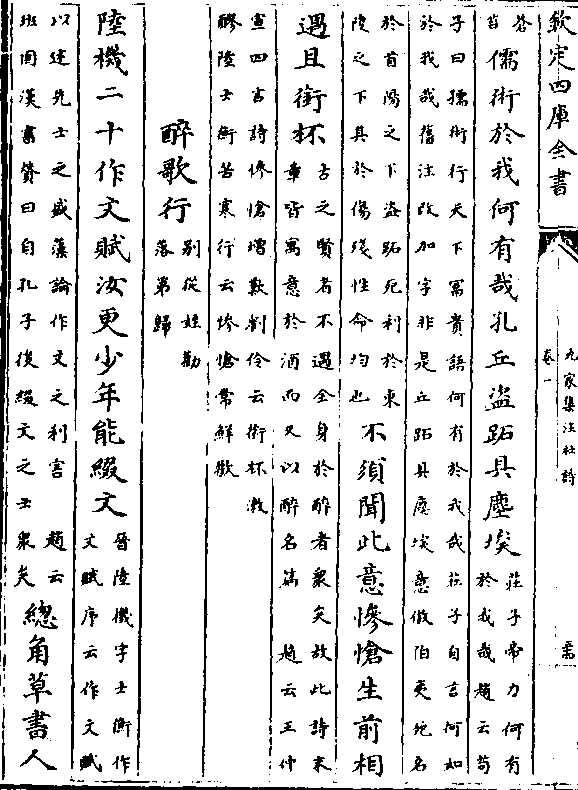 欽定四庫全書
九家集注杜詩
卷一
儒術於我何有哉孔丘盜跖具塵埃
莊子帝力何有
於我哉趙云苟
子曰儒術行天下富貴語何有於我哉莊子自言何如
於我哉舊注改加字非是丘跖具塵埃意倣伯夷死名
於首陽之下盜跖死利於東
陵之下其於傷殘性命均也
不須聞此意慘愴生前相
遇且銜杯
古之賢者不遇全身於酒者衆矣故此詩末
章皆寓意於酒而又以醉名篇 趙云王仲
宣四言詩慘愴增歎劉伶云銜杯漱
醪陸士衡苦寒行云慘愴常鮮歡
醉歌行
別從姪勤
落第歸
陸機二十作文賦汝更少年能綴文
晉陸機字士衡作
文賦序云作文賦
以述先士之盛藻論作文之利害 趙云
班固漢書贊曰自孔子後綴文之士衆矣
總角草書人